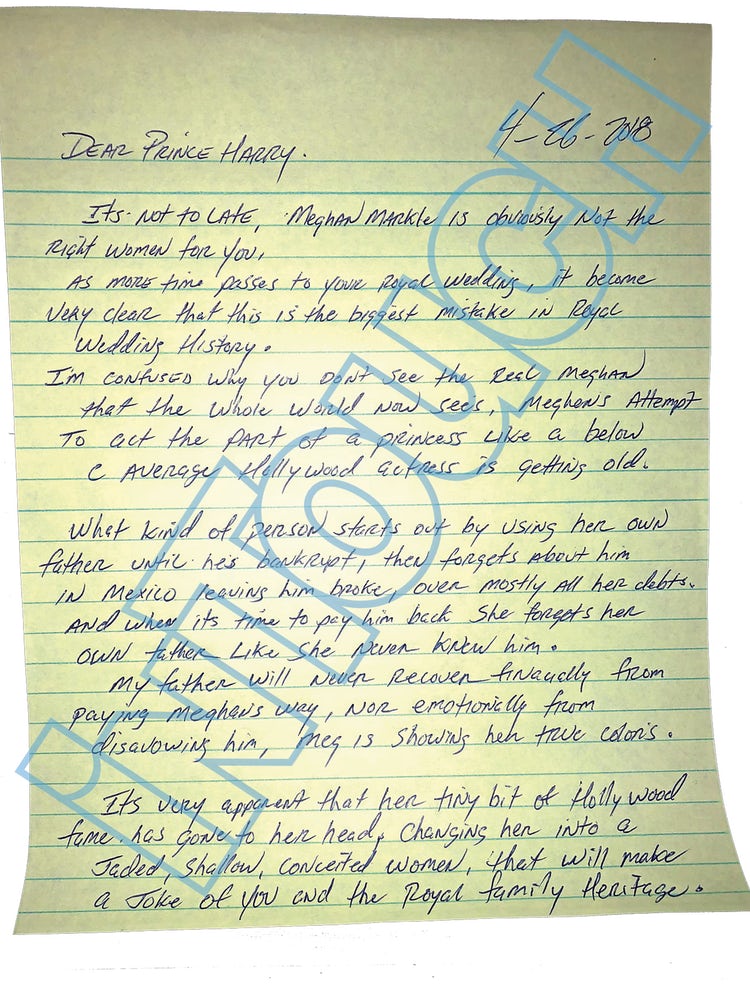 4-26-2018
DEAR PRINCE HARRY.
Its Not to LATE, Meghan MARKle is obviously Not the
Right women for you,
As more time passes to your Royal wedding, it become
Very clear that this is the biggest mistake in Royal
Wedding History.
I'm confused why you Don't see the Real Meghan
that the whole world Now sees, Meghan's Attempt
To act the PART of a princess Like a below
C AVERAGE Hollywood actress is getting old.
What kind of person starts out by using her own
father until he's bankrupt, then forgets About him
in Mexico leaving him broke, over mostly All her debts.
And when its time to pay him back She forgets her
own father Like She Never Knew him.
My father will Never Recover finacially from
paying Meghans way, Nor emotionally from
disavowing him, Meg is Showing her true colors.
Its very apparent that her tiny bit of Hollywood
fame has gone to her head, Changing her into a
Jaded, Shallow, Conceited women, that will make
a Joke of you and the Royal family Heritage.
INTOUCH